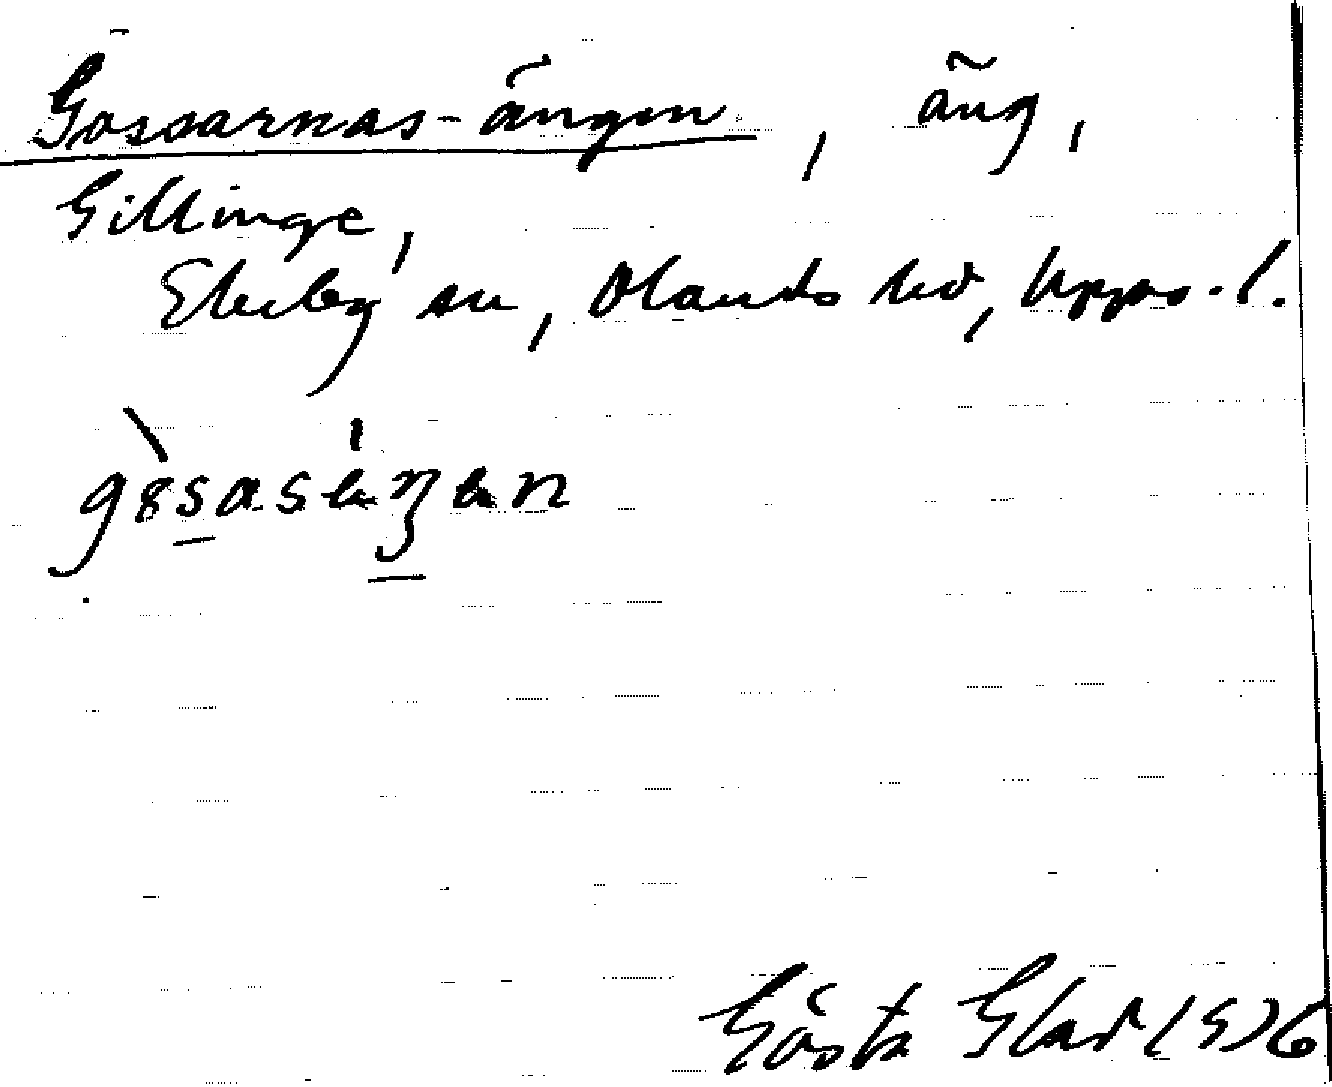 Gossarnas-ängen, äng,
Gillinge,
Ekeby sn, Olands hd, Upps. l.
Gösta Glad 1926